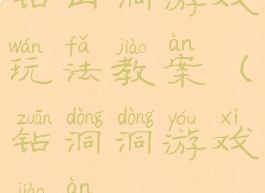 钻山洞游戏
wán fǎ jiào àn
玩法教案（
zuān dòng dòng yóu xì
钻洞洞游戏
jiào àn